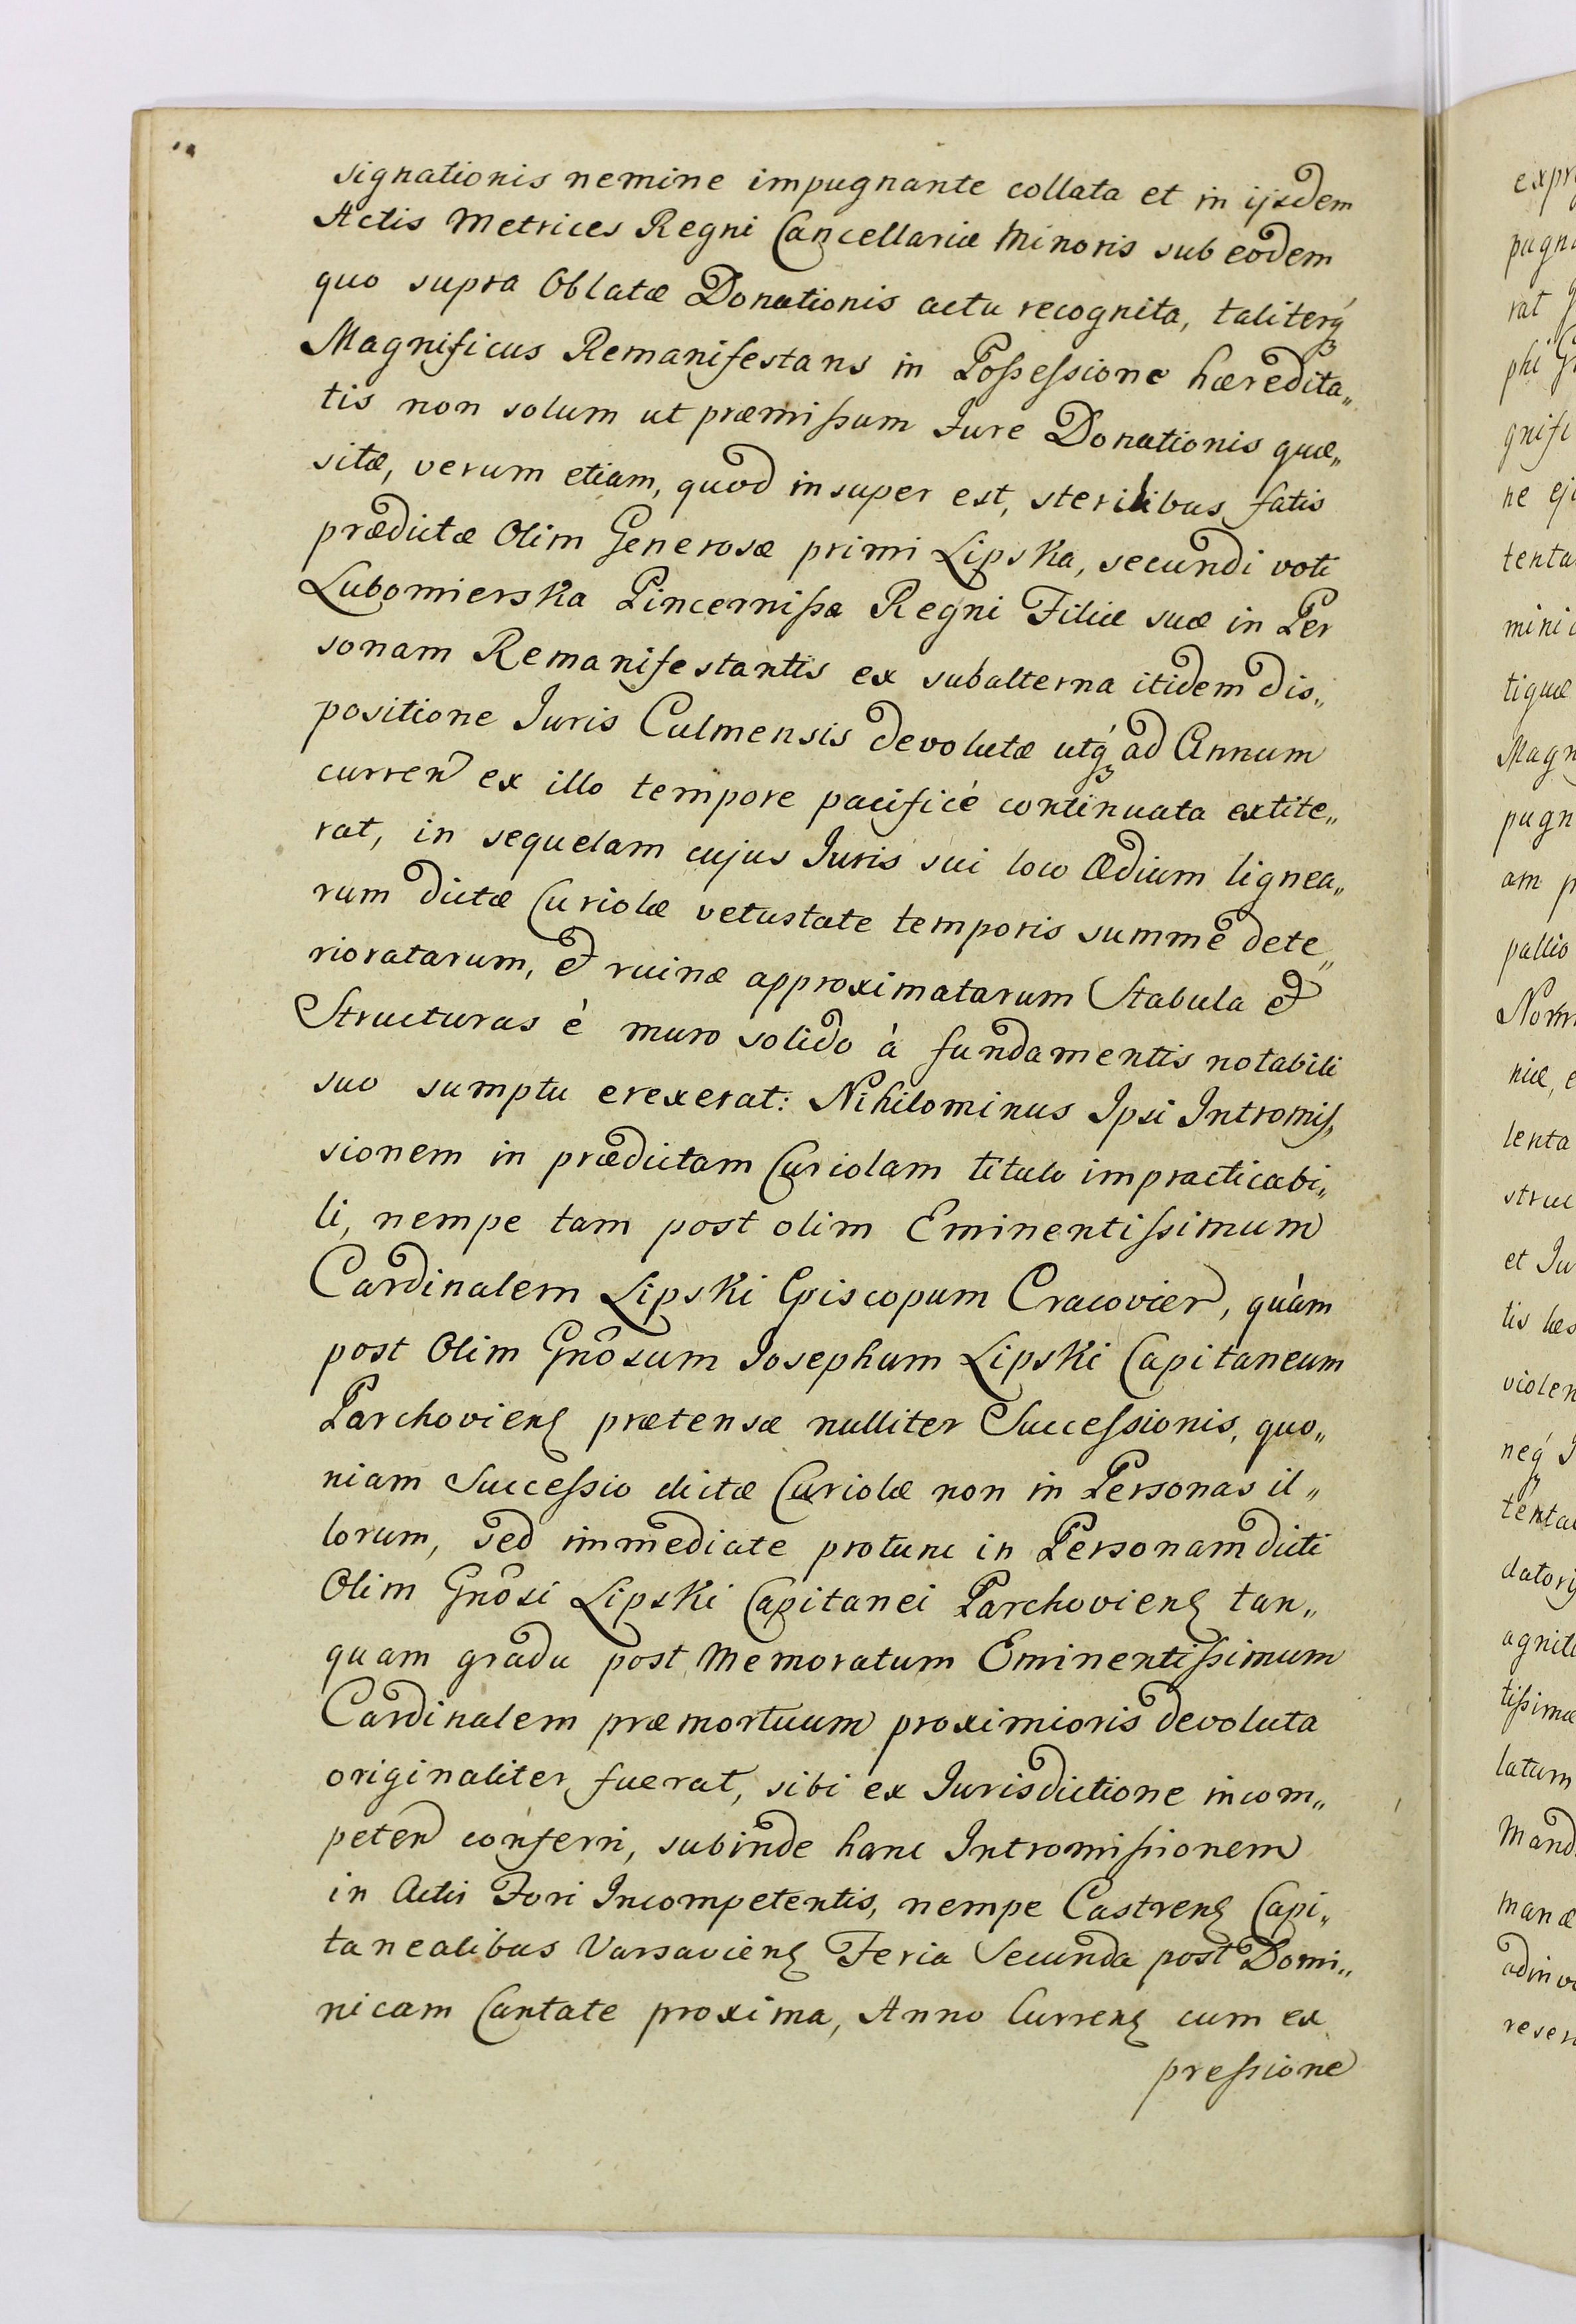 signationis nemine impugnante collata et in ijsdem
Actis Metrices Regni Cancellariæ Minoris sub eodem
quo supra Oblatæ Donationis actu recognita, taliterq́ꝫ
Magnificus Remanifestans in Poſseſsione hæredita„
tis non solum ut præmiſsum Jure Donationis quæ„
sitæ, verum etiam, quod insuper est, sterilibus fatis
prædictæ Olim Generosæ primi Lipska, secundi voti
Lubomierska Pincerniſsæ Regni Filiæ suæ in Per
sonam Remanifestantis ex subalterna itidem dis„
positione Iuris Culmensis devolutæ utq́ꝫ ad Annum
curren ex illo tempore pacificè continuata extite„
rat, in sequelam cujus Iuris sui loco Ædium lignea„
rum dictæ Curiolæ vetustate temporis summè dete„
rioratarum, et ruinæ approximatarum Stabula et
Structuras è muro solido à fundamentis notabili
suo sumptu erexerat: Nihilominus Ipsi Intromiſ„
sionem in prædictam Curiolam titulo impracticabi„
li, nempe tam post olim Eminentiſsimum
Cardinalem Lipski Episcopum Cracovien, quàm
post Olim Gnôsum Iosephum Lipski Capitaneum
Parchovienꝭ prætensæ nulliter Succeſsionis, quo„
niam Succeſsio dictæ Curiolæ non in Personas il„
lorum, sed immediate protunc in Personam dicti
Olim Gnôsi Lipski Capitanei Parchovienꝭ tan„
quam gradu post Memoratum Eminentiſsimum
Cardinalem præmortuum proximioris devoluta
originaliter fuerat, sibi ex Iurisdictione incom„
peten conferri, subinde hanc Intromiſsionem
in Actis Fori Incompetentis, nempe Castrenꝭ Capi„
tanealibus Varsavienꝭ Feria Secunda post Domi„
nicam Cantate proxima, Anno Currenꝭ cum ex
preſsione